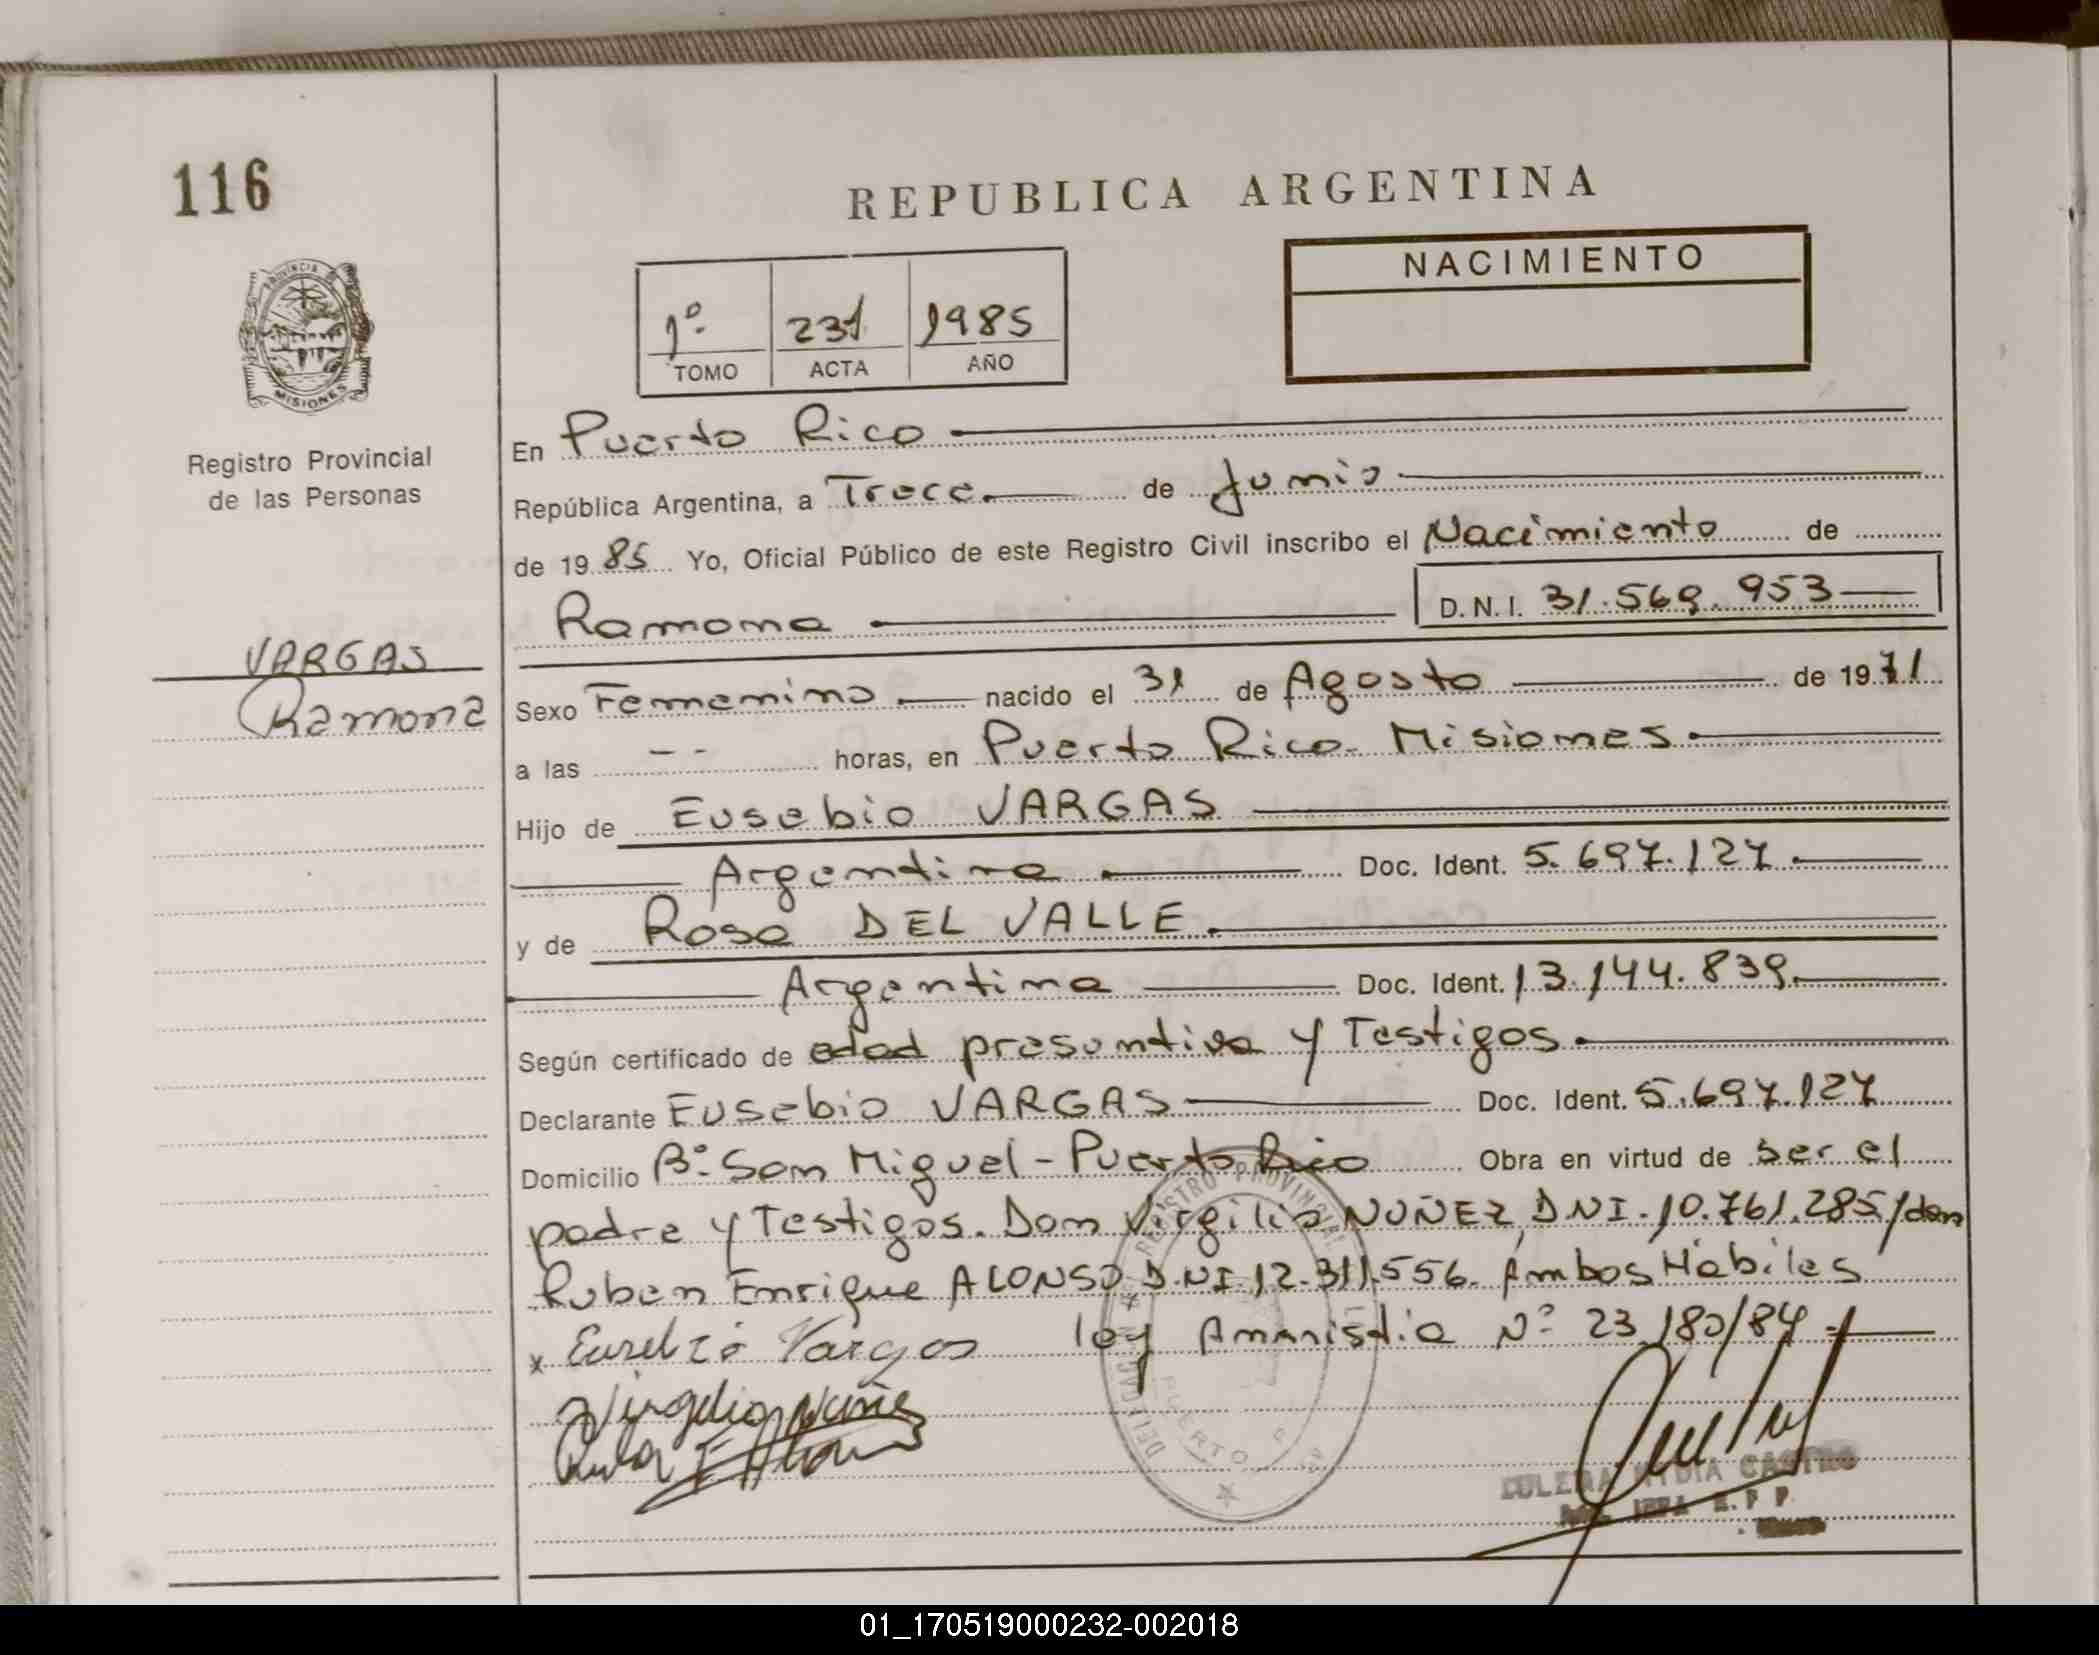 116
REPUBLICA ARGENTINA
PROVINCIA DE
MISIONES
Registro Provincial
de las Personas
1º 231 1985
TOMO ACTA AÑO
NACIMIENTO
En Puerto Rico
República Argentina, a Trece de Junio
de 1985 Yo, Oficial Público de este Registro Civil inscribo el Nacimiento de
Ramona D.N.I. 31.569.953
VARGAS
Ramona
Sexo Femenino nacido el 31 de Agosto de 1971
a las -- horas, en Puerto Rico - Misiones
Hijo de Eusebio VARGAS
Argentina Doc. Ident. 5.697.127
y de Rosa DEL VALLE
Argentina Doc. Ident. 13.144.839
Según certificado de edad presuntiva y Testigos
Declarante Eusebio VARGAS Doc. Ident. 5.697.127
Domicilio Bº San Miguel - Puerto Rico Obra en virtud de ser el
padre y Testigos. Don Virgilio NUÑEZ, D.NI. 10.761.285/don
Ruben Enrique ALONSO D.NI. 12.311.556. Ambos Habiles
x Eusebio Vargas ley Amnistia Nº 23.180/84
Virgilio Nuñe
REGISTRO PROVINCIAL
PUERTO
CASTRO
01_170519000232-002018